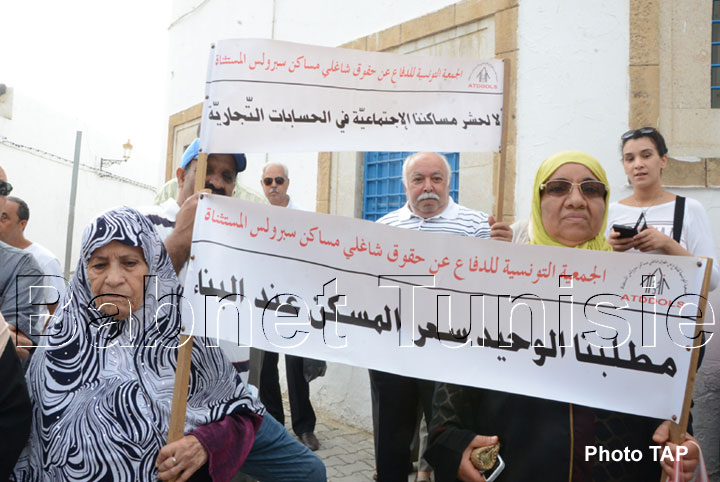 الجمعية التونسية للدفاع عن حقوق شاغلي مساكن سبرولس المستثناة
ATDDOLS
لا لحشر مساكننا الإجتماعيّة في الحسابات التّجاريّة
الجمعية التونسية للدفاع عن حقوق شاغلي مساكن سبرولس المستثناة
ATDDOLS
مطلبنا الوحيد سعر المسكن عند البناء
Babnet Tunisie
Photo TAP